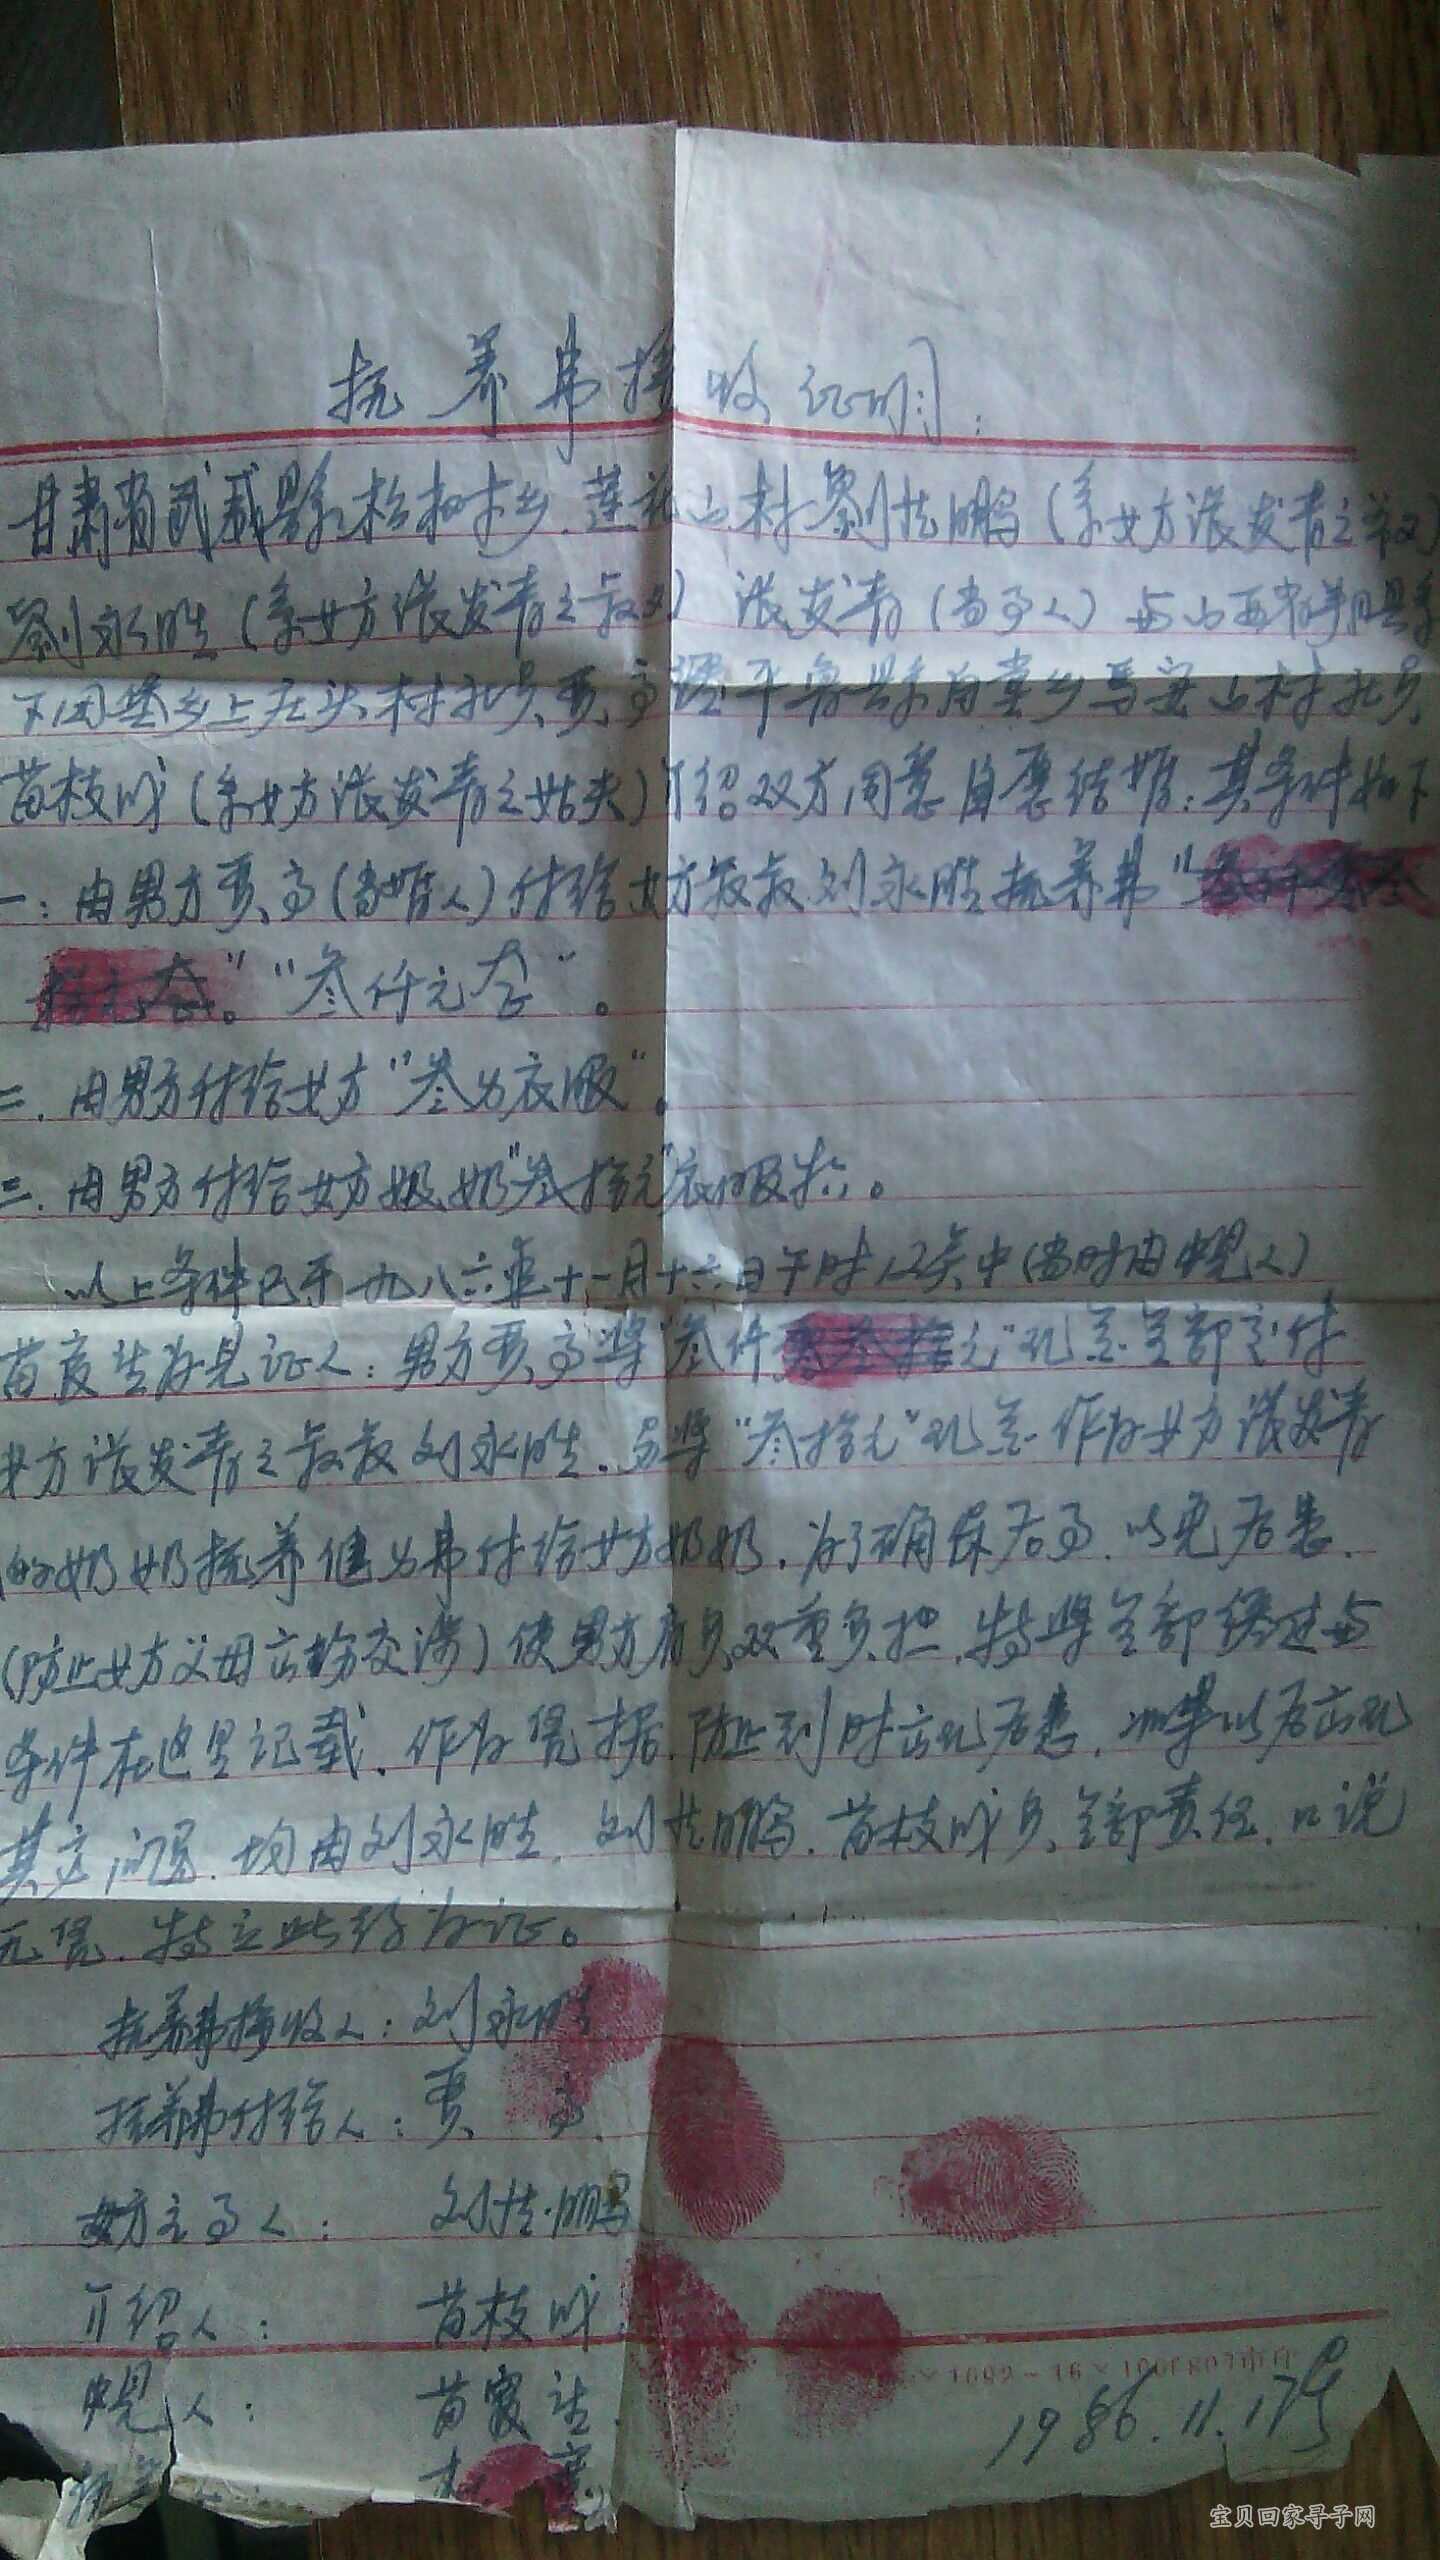 抚养费接收证明:
甘肃省武威县松树乡.莲花山村劉 鹏(系女方张发青之 父)
劉永胜(系女方张发青之叔父) 张发青(当事人)与山西省 县
下 乡上庄头村社员贾高 平鲁县 乡 山村社员
苗枝成(系女方张发青之姑夫)介绍双方同意自愿结婚:其条件如下
一:由男方贾高(当婚人)付给女方叔叔刘永胜抚养费"叁仟
拾元 "。"叁仟元 "。
二.由男方付给女方"叁 衣服"。
三.由男方付给女方奶奶"叁拾元"衣服 。
以上条件已于一九八六年十一月十六日午时12点中(当时由中見人)
苗 生为见证人:男方贾高将"叁仟 元"现 全部交付
女方张发青之叔叔刘永胜.另将"叁拾元"现 作为女方张发青
的奶奶抚养 费付给女方奶奶.为了确保后事.以免后患.
(防止女方父母 交涉)使男方肩负双重负担.特将全部经过与
条件在这里记载.作为凭据.防止到时出现后患.如果以后出现
其它问题.均由刘永胜.刘 鹏.苗枝成负全部责任.口说
无凭.特立此 为证。
抚养费接收人:刘永胜
抚养费付给人:贾 高
女方主事人: 刘 鹏
介绍人: 苗枝成
中見人: 苗 生
1986.11.17号
宝贝回家寻子网